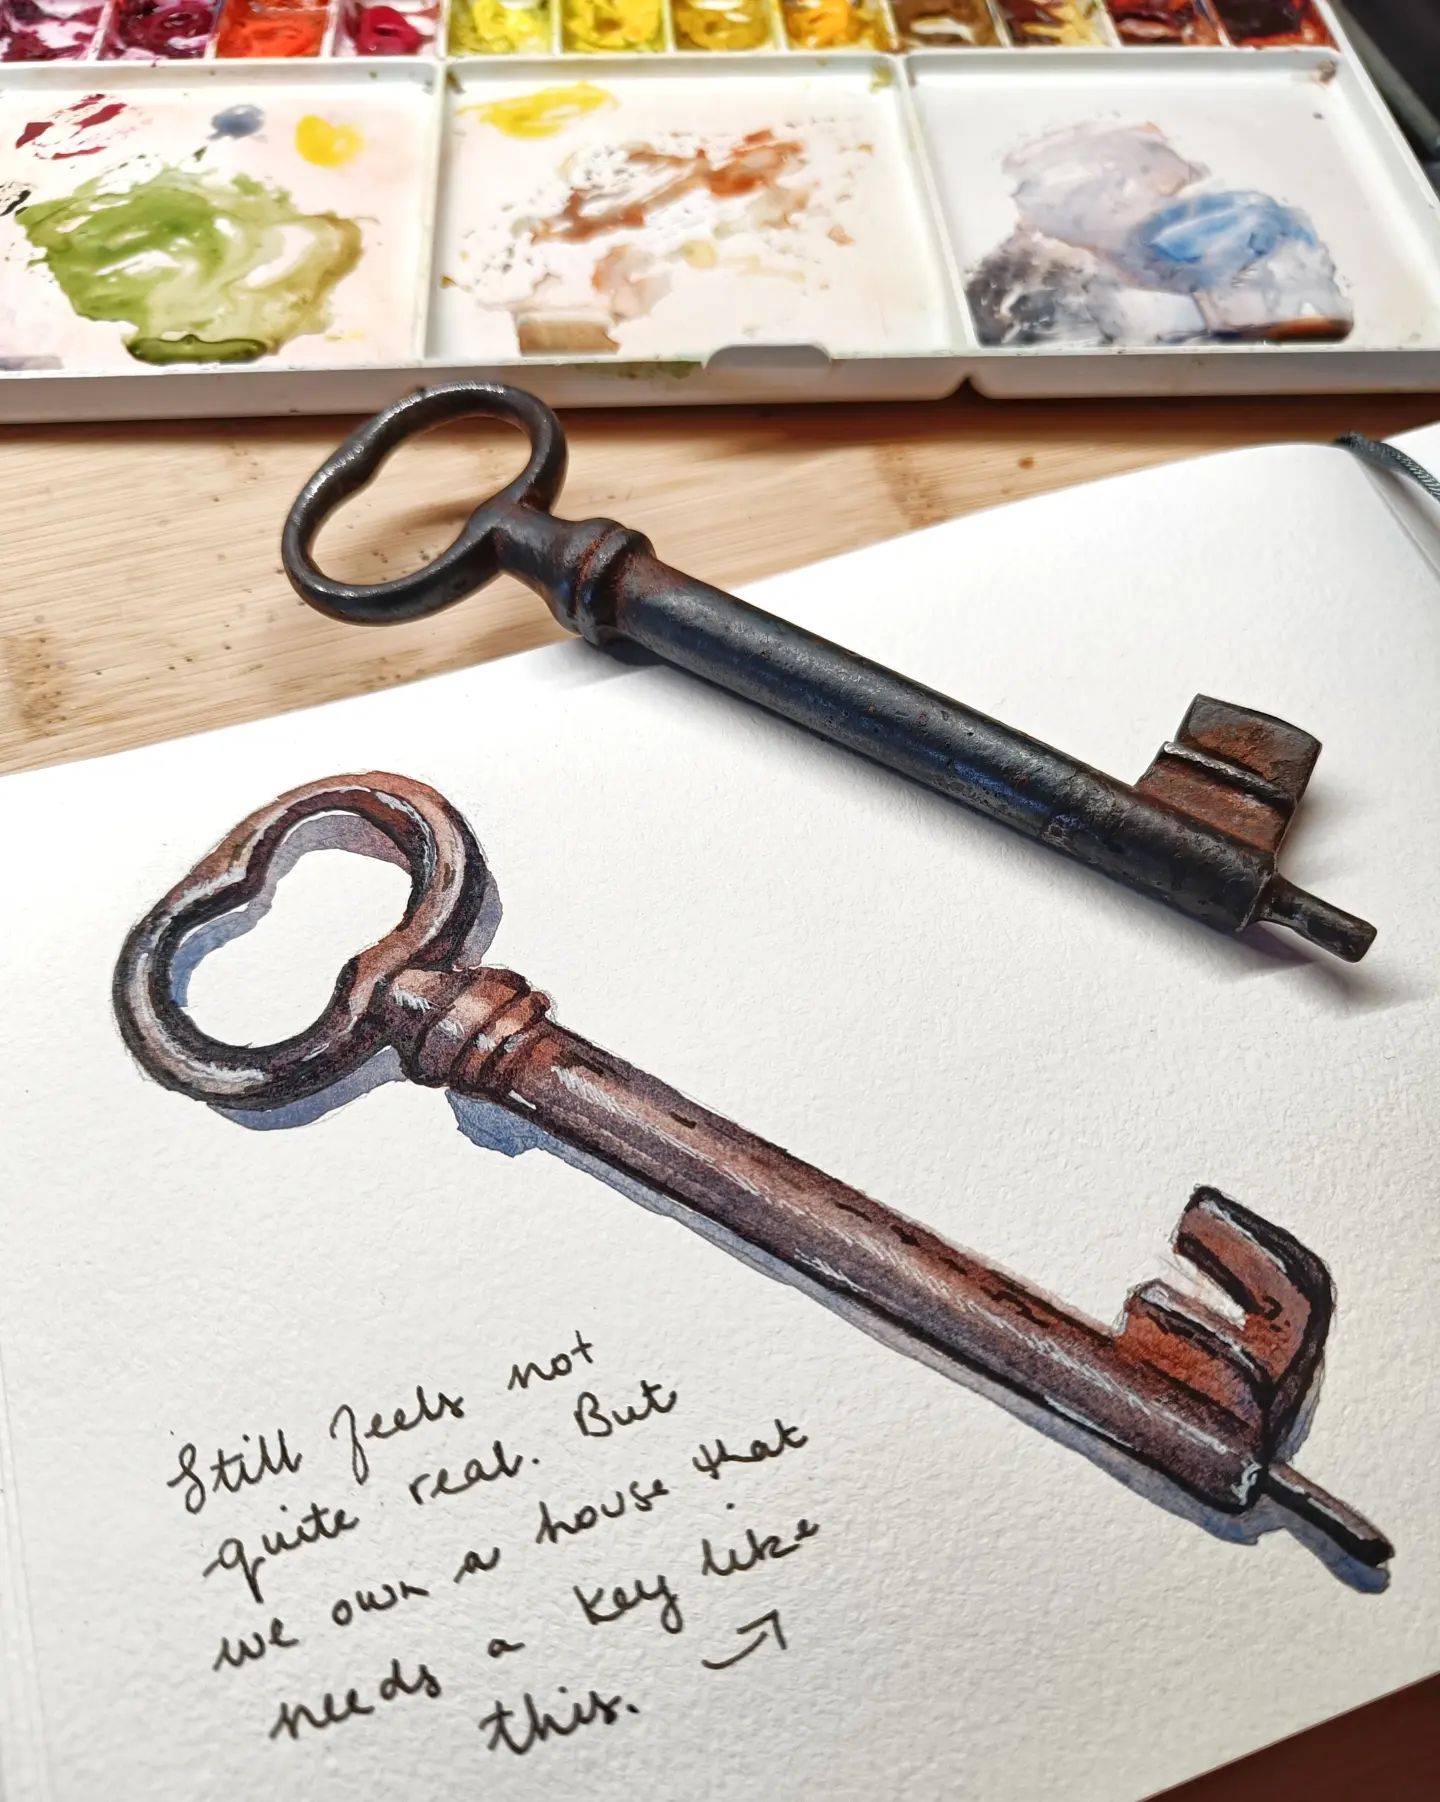 Still feels not
quite real. But
we own a house that
needs a key like
this. →